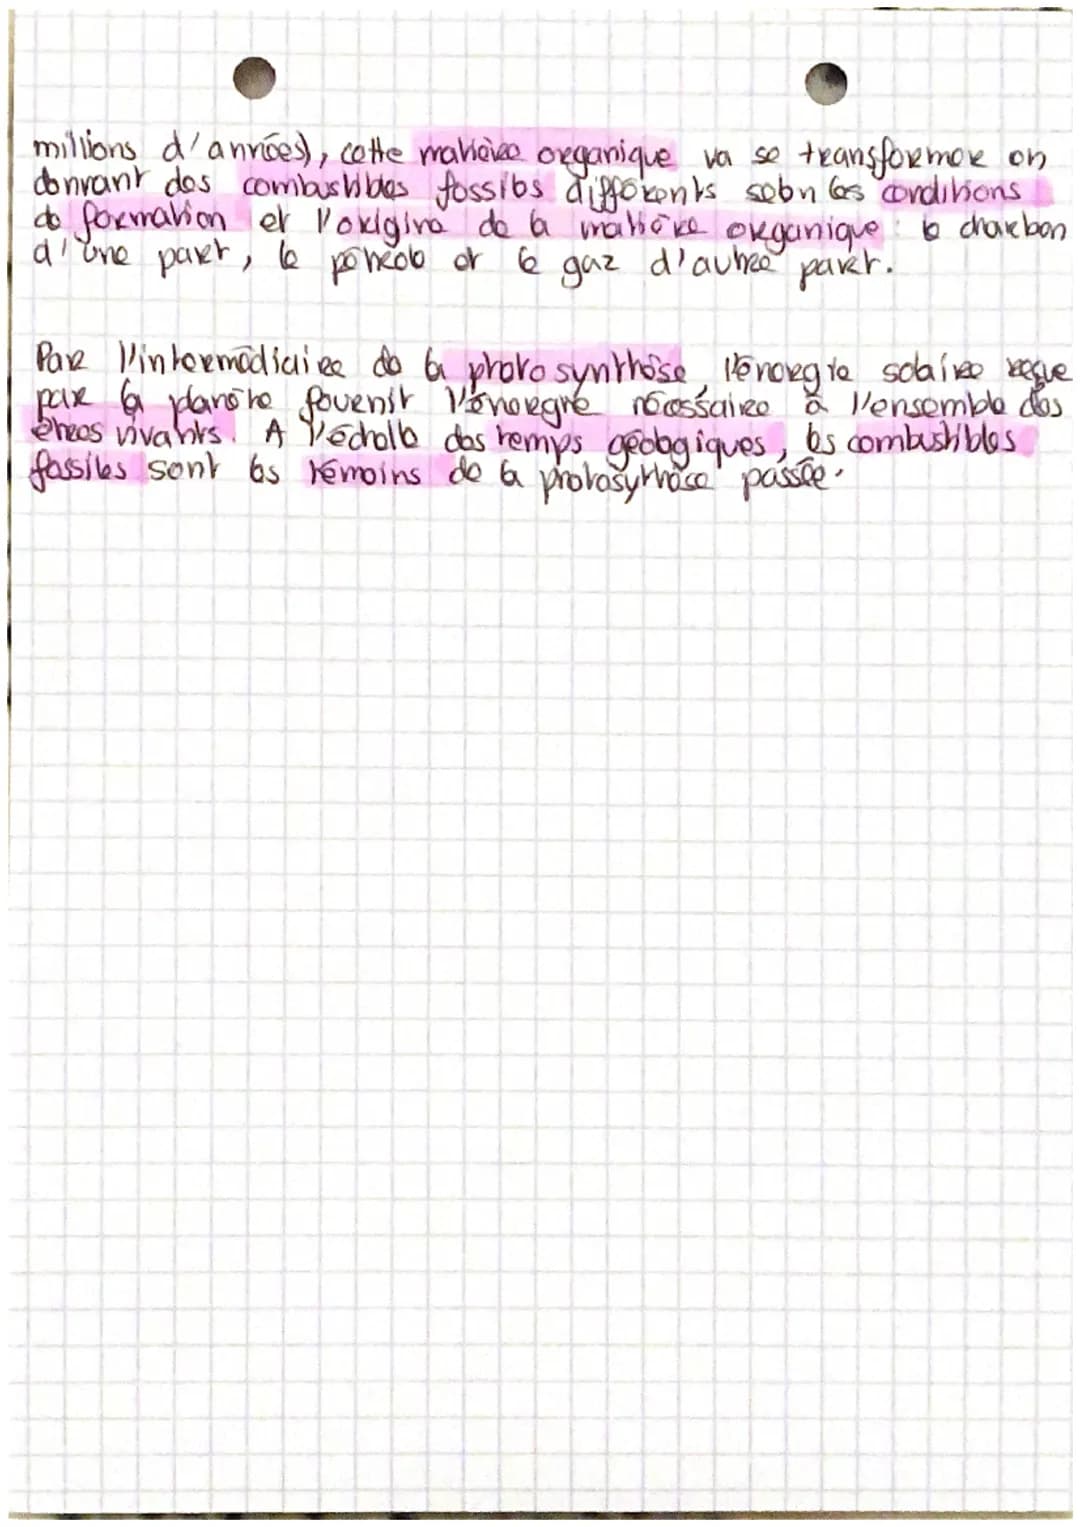 millions d'années), cette matière organique va se transformer en
donnant des combustibles fossiles différents selon les conditions
de formation et l'origine de la matière organique : le charbon
d'une part, le pétrole et le gaz d'autre part.
Par l'intermédiaire de la photosynthèse, l'énergie solaire reçue
par la planète fournit l'énergie nécessaire à l'ensemble des
êtres vivants. A l'échelle des temps géologiques, les combustibles
fossiles sont les témoins de la photosynthèse passée.